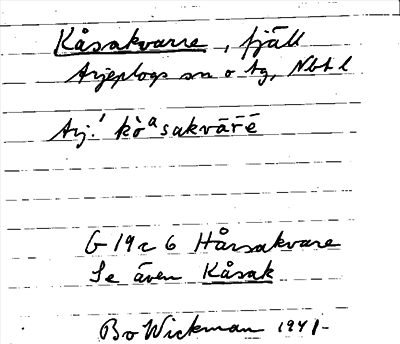 Kåsakvarre, fjäll
Arjeplogs sn o tg, Nbt l
Arj.! kò͔ᵃsakvār̄ē
G 19 c 6 Hårsakvare
Se även Kåsak
Bo Wickman 1941-